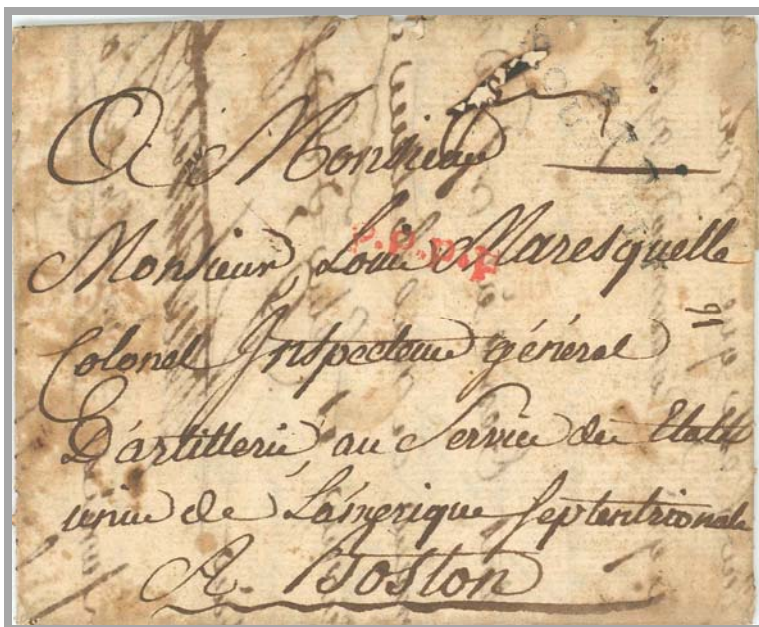 A Monsieur
Monsieur Louis Maresquelle
P.P.P.P
Colonel Inspecteur général
16
D'artillerie, au Service des Etats
unis de L'amerique Septentrionale
A Boston